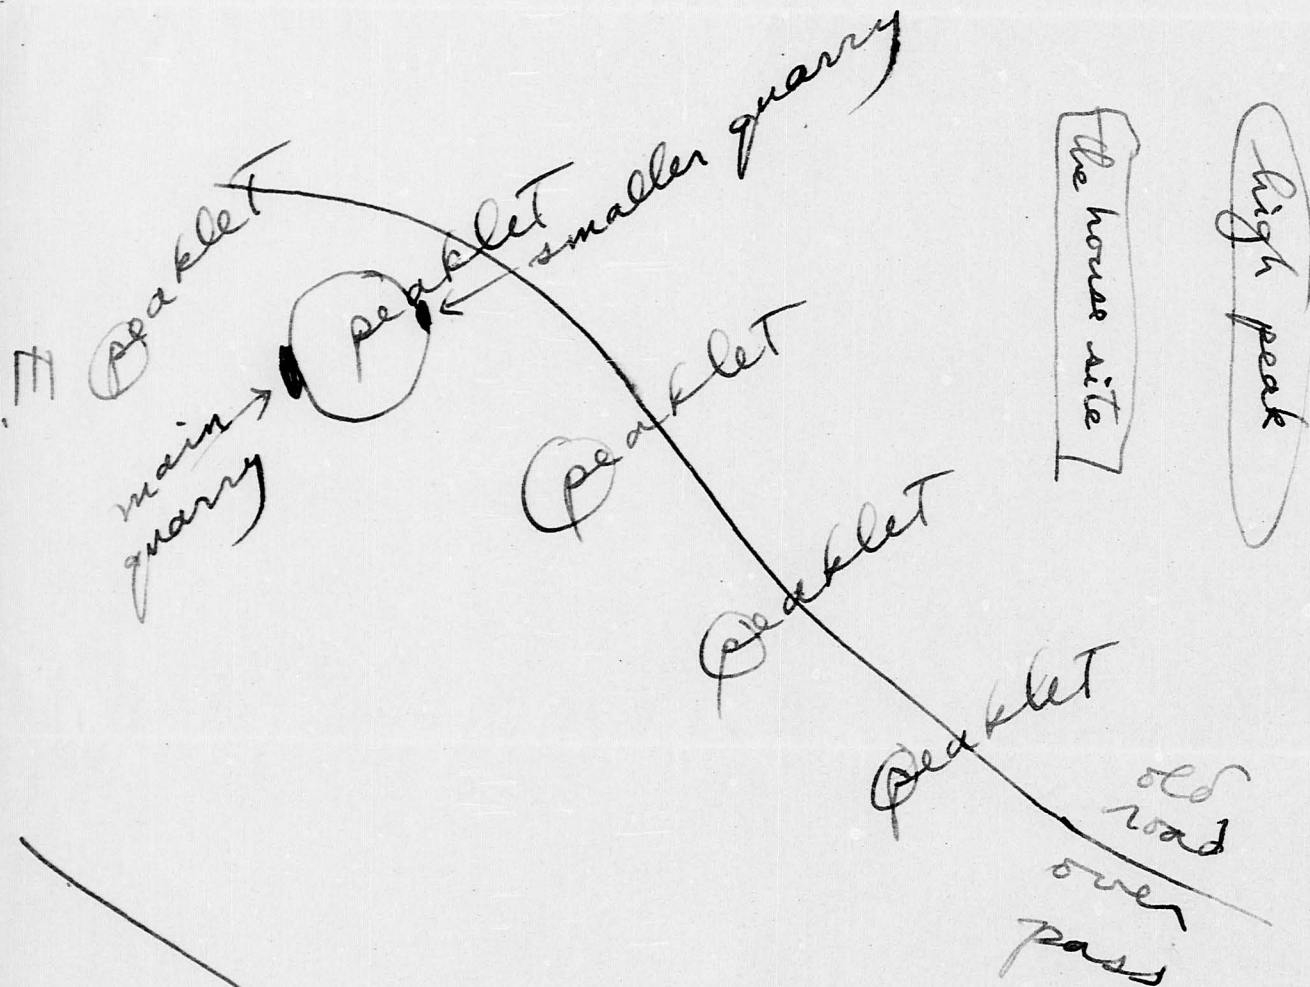 smaller quarry
peaklet
peaklet
main
quarry
peaklet
peaklet
peaklet
the house site
high peak
old
road
over
pass